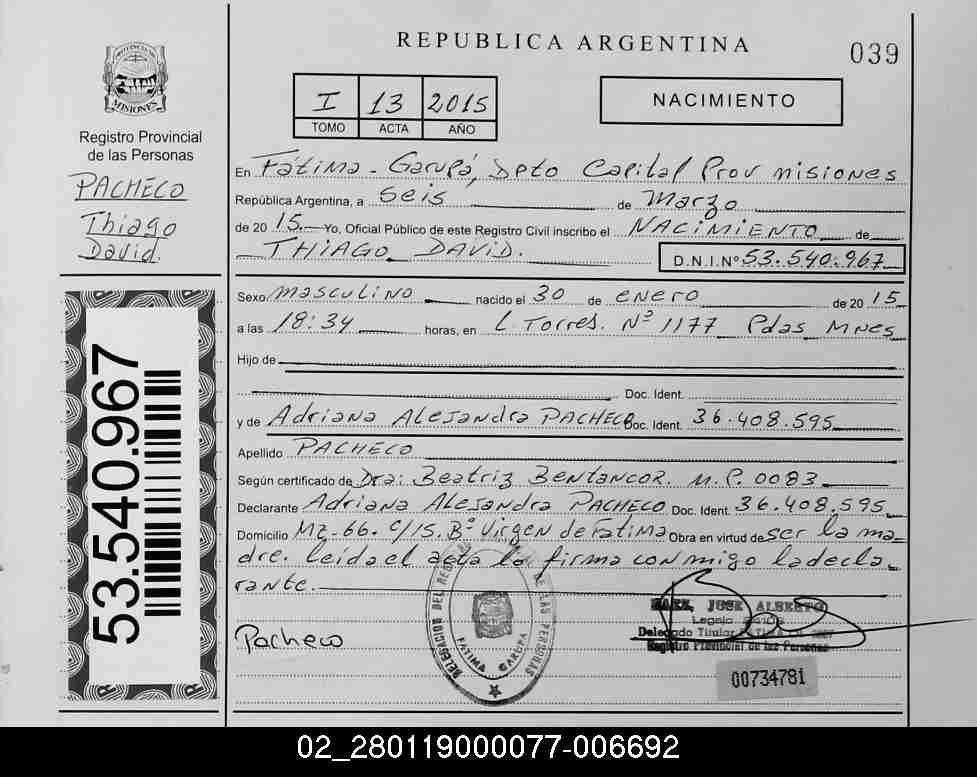 REPUBLICA ARGENTINA
039
PROVINCIA DE
MISIONES
Registro Provincial
de las Personas
PACHECO
Thiago
David.
I 13 2015
TOMO ACTA AÑO
NACIMIENTO
En Fátima - Garupá, Dpto Capital Prov misiones
República Argentina, a seis de Marzo
de 2015. Yo, Oficial Público de este Registro Civil inscribo el NACIMIENTO de
THIAGO DAVID. D.N.I.Nº 53.540.967
Sexo masculino nacido el 30 de enero de 2015
a las 18:34 horas, en L. Torres. Nº 1177 Pdas Mnes
Hijo de
Doc. Ident.
y de Adriana Alejandra PACHECO Doc. Ident. 36.408.595
Apellido PACHECO
Según certificado de Dra: Beatriz Bentancor. M.P. 0083
Declarante Adriana Alejandra PACHECO Doc. Ident. 36.408.595
Domicilio Mz. 66. c/15. Bº Virgen de Fatima Obra en virtud de ser la ma-
dre. leida el acta la firma conmigo la decla-
rante.
Pacheco
DELEGACION DEL REGISTRO DE LAS PERSONAS
FATIMA GARUPA
JOSE ALBERTO
Delegado Titular
Registro Provincial de las Personas
00734781
53.540.967
02_280119000077-006692